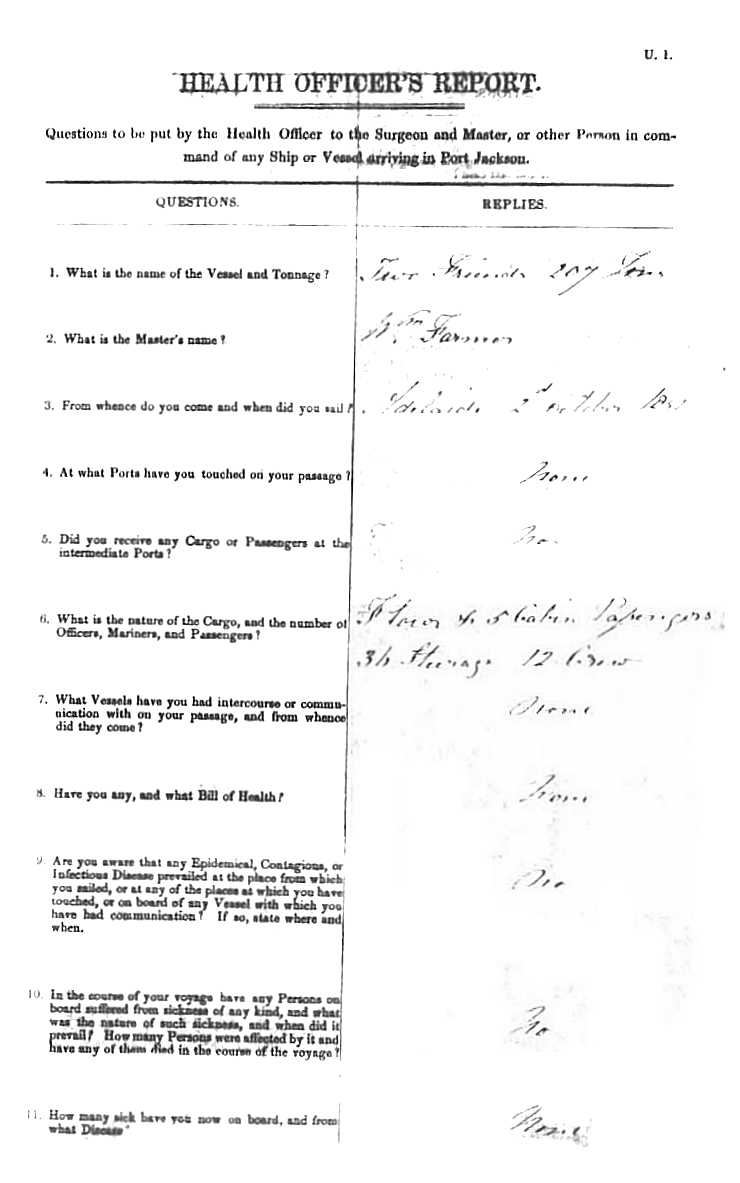 U. 1.
HEALTH OFFICER'S REPORT.
Questions to be put by the Health Officer to the Surgeon and Master, or other Person in com-
mand of any Ship or Vessel arriving in Port Jackson.
QUESTIONS.
REPLIES.
1. What is the name of the Vessel and Tonnage?
Two Friends 207 Tons
2. What is the Master's name?
Wm Farmer
3. From whence do you come and when did you sail?
Adelaide 2d October
4. At what Ports have you touched on your passage?
None
5. Did you receive any Cargo or Passengers at the
intermediate Ports?
No
6. What is the nature of the Cargo, and the number of
Officers, Mariners, and Passengers?
Flour & 5 Cabin Passengers
Steerage 12 Crew
7. What Vessels have you had intercourse or commu-
nication with on your passage, and from whence
did they come?
None
8. Have you any, and what Bill of Health?
None
9. Are you aware that any Epidemical, Contagious, or
Infectious Disease prevailed at the place from which
you sailed, or at any of the places at which you have
touched, or on board of any Vessel with which you
have had communication? If so, state where and
when.
No
10. In the course of your voyage have any Persons on
board suffered from sickness of any kind, and what
was the nature of such sickness, and when did it
prevail? How many Persons were affected by it and
have any of them died in the course of the voyage?
No
11. How many sick have you now on board, and from
what Disease
None